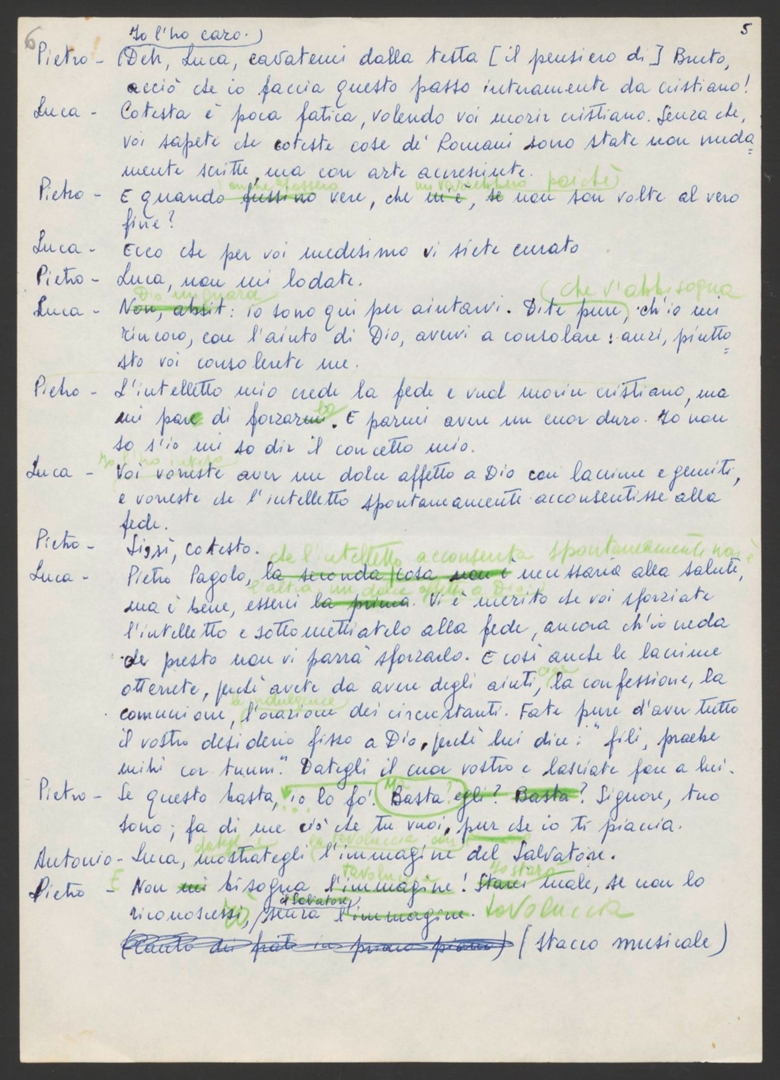 6
5
Io l'ho caro.)
Pietro - (Deh, Luca, cavatemi dalla testa [il pensiero di] Bruto,
acciò che io faccia questo passo interamente da cristiano!
Luca - Cotesta è poca fatica, volendo voi morir cristiano. Senza che,
voi sapete che coteste cose de' Romani sono state non nuda=
mente scritte, ma con arte accresciute.
anche fossero mi varrebbero poichè)
Pietro - E quando fussino vere, che mi è, se non son volte al vero
fine?
Luca - Ecco che per voi medesimo vi siete curato
Pietro - Luca, non mi lodate.
Dio mi guardi (che v'abbisogna
Luca - Non absit: io sono qui per aiutarvi. Dite pure, ch'io mi
rincoro, con l'aiuto di Dio, avervi a consolare: anzi, piutto=
sto voi consolerete me.
Pietro - L'intelletto mio crede la fede e vuol morir cristiano, ma
mi pare di forzarmi. E parmi avere un cuor duro. Io non
so s'io mi so dir il concetto mio.
Io l'ho inteso
Luca - Voi vorreste aver un dolce affetto a Dio con lacrime e gemiti,
e vorreste che l'intelletto spontaneamente acconsentisse alla
fede.
Pietro - Sissì, cotesto.
che l'intelletto acconsenta spontaneamente non è
Luca - Pietro Pagolo, la seconda cosa non è necessaria alla salute,
l'altra un dolce affetto a Dio
ma è bene, esserci la prima. Vi è merito che voi sforziate
l'intelletto e sottomettiatelo alla fede, ancora ch'io creda
che presto non vi parrà sforzarlo. E così anche le lacrime
otterrete, perchè avete da avere degli aiuti, la confessione, la
le indulgenze
comunione, l'orazione dei circonstanti. Fate pure d'aver tutto
il vostro desiderio fisso a Dio, perchè lui dice: "fili, praebe
mihi cor tuum". Dategli il cuor vostro e lasciate fare a lui.
Pietro - Se questo basta, io lo fo. Ma Basta egli? Basta? Signore, tuo
sono; fa di me ciò che tu vuoi, pur che io ti piaccia.
Antonio - Luca, mostrategli l'immagine del Salvatore.
tavoluccia
Pietro - E Non mi bisogna l'immagine! Starei male, se non lo
il Salvatore
riconoscessi, senza l'immagine. tavoluccia
(Canto dei frati in primo piano) (stacco musicale)